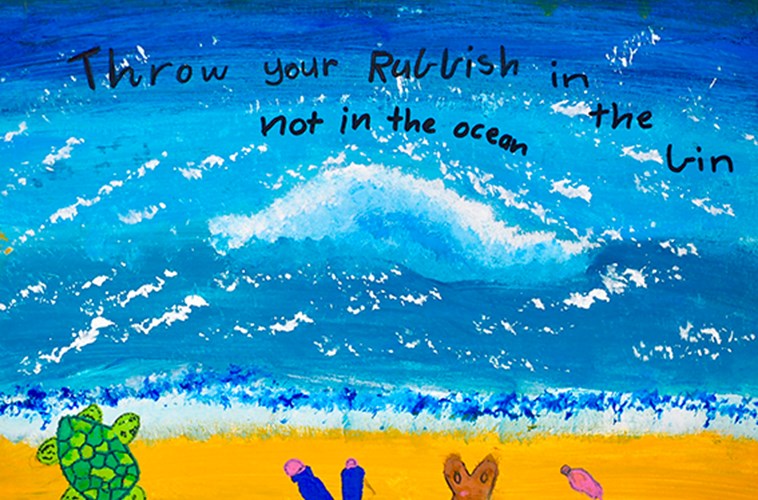 Throw your Rubbish in the bin
not in the ocean